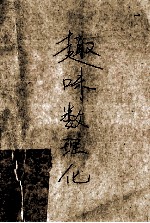 趣味数理化